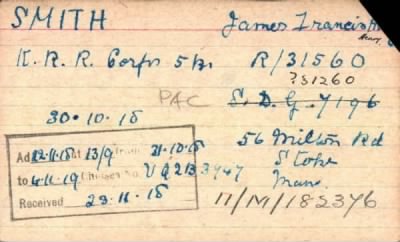 SMITH James Francis Henry
K. R. R. Corps 5 Bn R/31560
? 31260
PAC S. D. G. 7196
30·10·18
56 Milton Rd
Stoke
Ad 22·11·18 at 13/9 from 31·10·18
to 4·11·19 Chelsea No. 3947
Received 23·11·18
11/M/182376